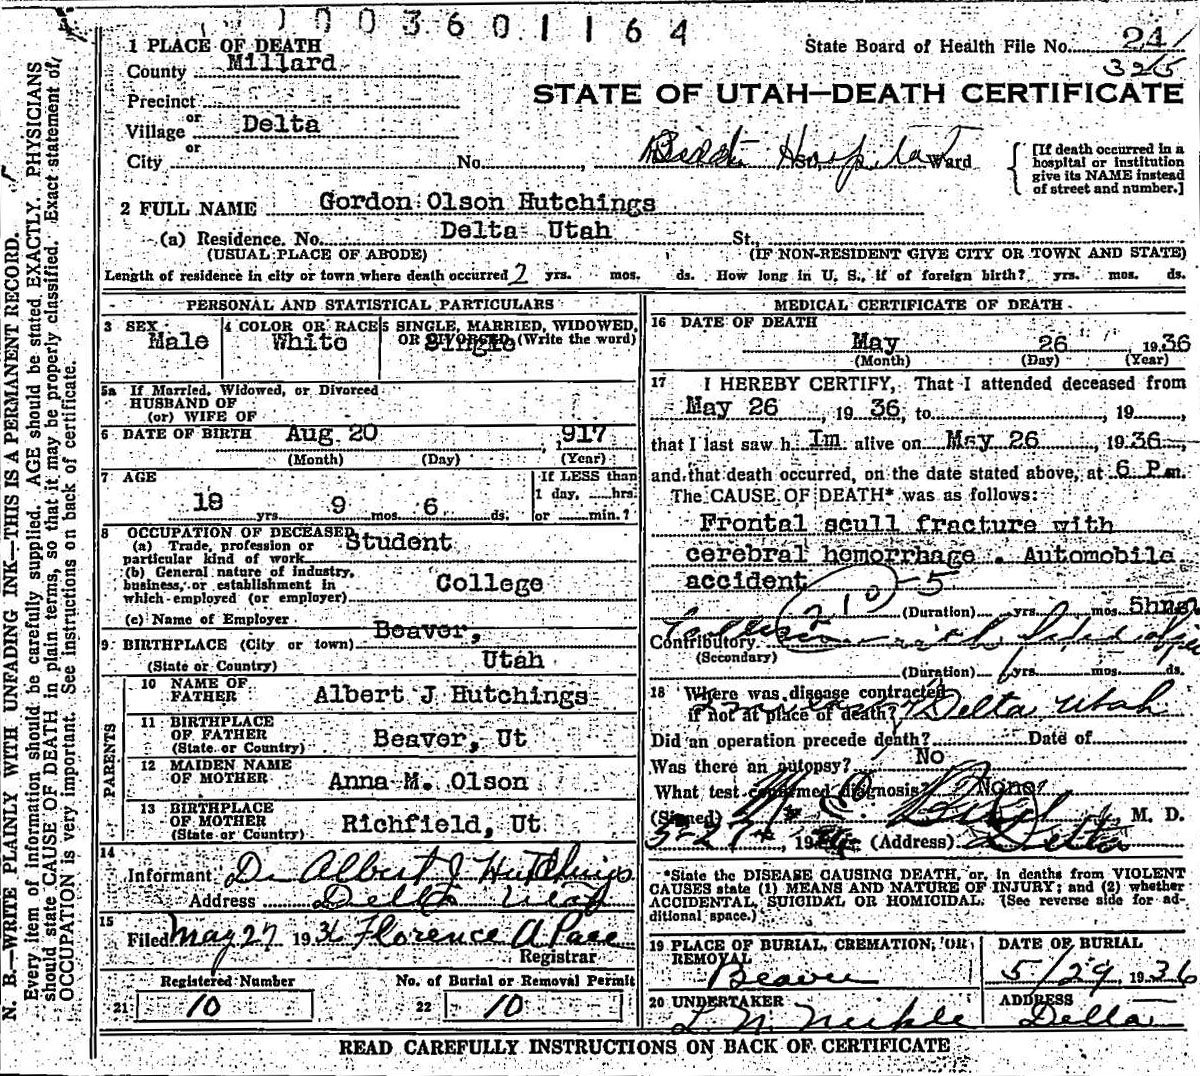 1003601164
1 PLACE OF DEATH
County Millard
State Board of Health File No. 24
325
Precinct
STATE OF UTAH—DEATH CERTIFICATE
or
Village Delta
or
City No. Hospital Ward
[If death occurred in a
hospital or institution
give its NAME instead
of street and number.]
2 FULL NAME Gordon Olson Hutchings
(a) Residence. No. Delta Utah St.
(USUAL PLACE OF ABODE) (IF NON-RESIDENT GIVE CITY OR TOWN AND STATE)
Length of residence in city or town where death occurred 2 yrs. mos. ds. How long in U. S., if of foreign birth? yrs. mos. ds.
PERSONAL AND STATISTICAL PARTICULARS
3 SEX Male
4 COLOR OR RACE White
5 SINGLE, MARRIED, WIDOWED,
OR DIVORCED (Write the word) Single
5a If Married, Widowed, or Divorced
HUSBAND OF
(or) WIFE OF
6 DATE OF BIRTH Aug 20 , 1917
(Month) (Day) (Year)
7 AGE
18 yrs. 9 mos. 6 ds.
If LESS than
1 day, ......hrs.
or ......min.?
8 OCCUPATION OF DECEASED
(a) Trade, profession or
particular kind of work Student
(b) General nature of industry,
business, or establishment in
which employed (or employer) College
(c) Name of Employer
9 BIRTHPLACE (City or town) Beaver,
(State or Country) Utah
PARENTS
10 NAME OF
FATHER Albert J Hutchings
11 BIRTHPLACE
OF FATHER
(State or Country) Beaver, Ut
12 MAIDEN NAME
OF MOTHER Anna M. Olson
13 BIRTHPLACE
OF MOTHER
(State or Country) Richfield, Ut
14
Informant Dr Albert J Hutchings
Address Delta Utah
15
Filed May 27 1936 Florence A Pace
Registrar
Registered Number
21 10
No. of Burial or Removal Permit
22 10
MEDICAL CERTIFICATE OF DEATH
16 DATE OF DEATH
May 26 1936
(Month) (Day) (Year)
17 I HEREBY CERTIFY, That I attended deceased from
May 26, 1936, to , 19 ,
that I last saw h Im alive on May 26 1936
and that death occurred, on the date stated above, at 6 P.m.
The CAUSE OF DEATH* was as follows:
Frontal scull fracture with
cerebral homorrhage . Automobile
accident
210-5
(Duration) yrs. mos. 5hrs
Contributory
(Secondary)
(Duration) yrs. mos. ds.
18 Where was disease contracted
if not at place of death? Delta Utah
Did an operation precede death? Date of
Was there an autopsy? No
What test confirmed diagnosis? None
(Signed) M. D.
5-27, 19 (Address) Delta
*State the DISEASE CAUSING DEATH, or, in deaths from VIOLENT
CAUSES state (1) MEANS AND NATURE OF INJURY; and (2) whether
ACCIDENTAL, SUICIDAL OR HOMICIDAL. (See reverse side for ad-
ditional space.)
19 PLACE OF BURIAL, CREMATION, OR
REMOVAL
Beaver
DATE OF BURIAL
5/29 1936
20 UNDERTAKER
ADDRESS
Delta
READ CAREFULLY INSTRUCTIONS ON BACK OF CERTIFICATE
N. B.—WRITE PLAINLY WITH UNFADING INK—THIS IS A PERMANENT RECORD.
Every item of information should be carefully supplied. AGE should be stated EXACTLY. PHYSICIANS
should state CAUSE OF DEATH in plain terms, so that it may be properly classified. Exact statement of
OCCUPATION is very important. See instructions on back of certificate.